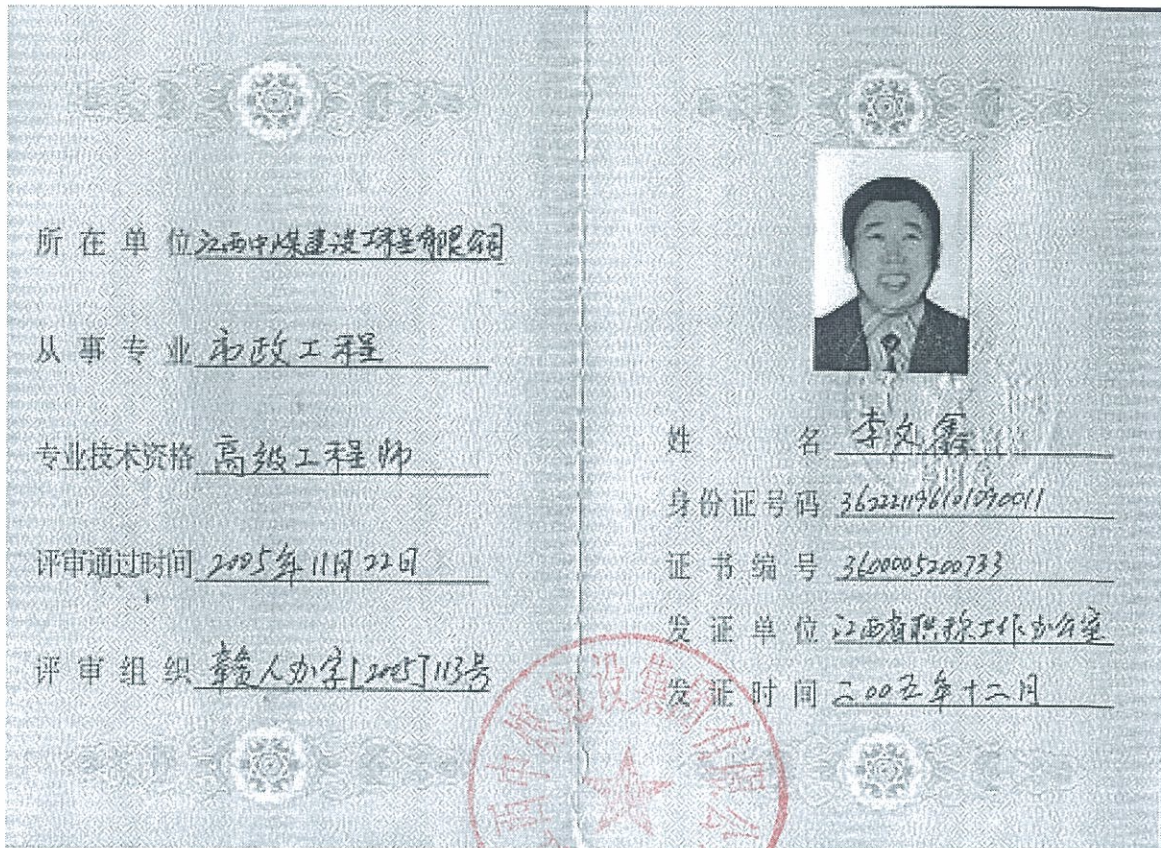 所在单位江西中煤建设工程有限公司
从事专业 市政工程
专业技术资格 高级工程师
评审通过时间 2005年11月22日
评审组织 赣人办字[2005]113号
姓名 李文鑫
身份证号码 362221196101090011
证书编号 3600005200733
发证单位 江西省职称工作办公室
发证时间 二00五年十二月
西中煤建设集团有限公